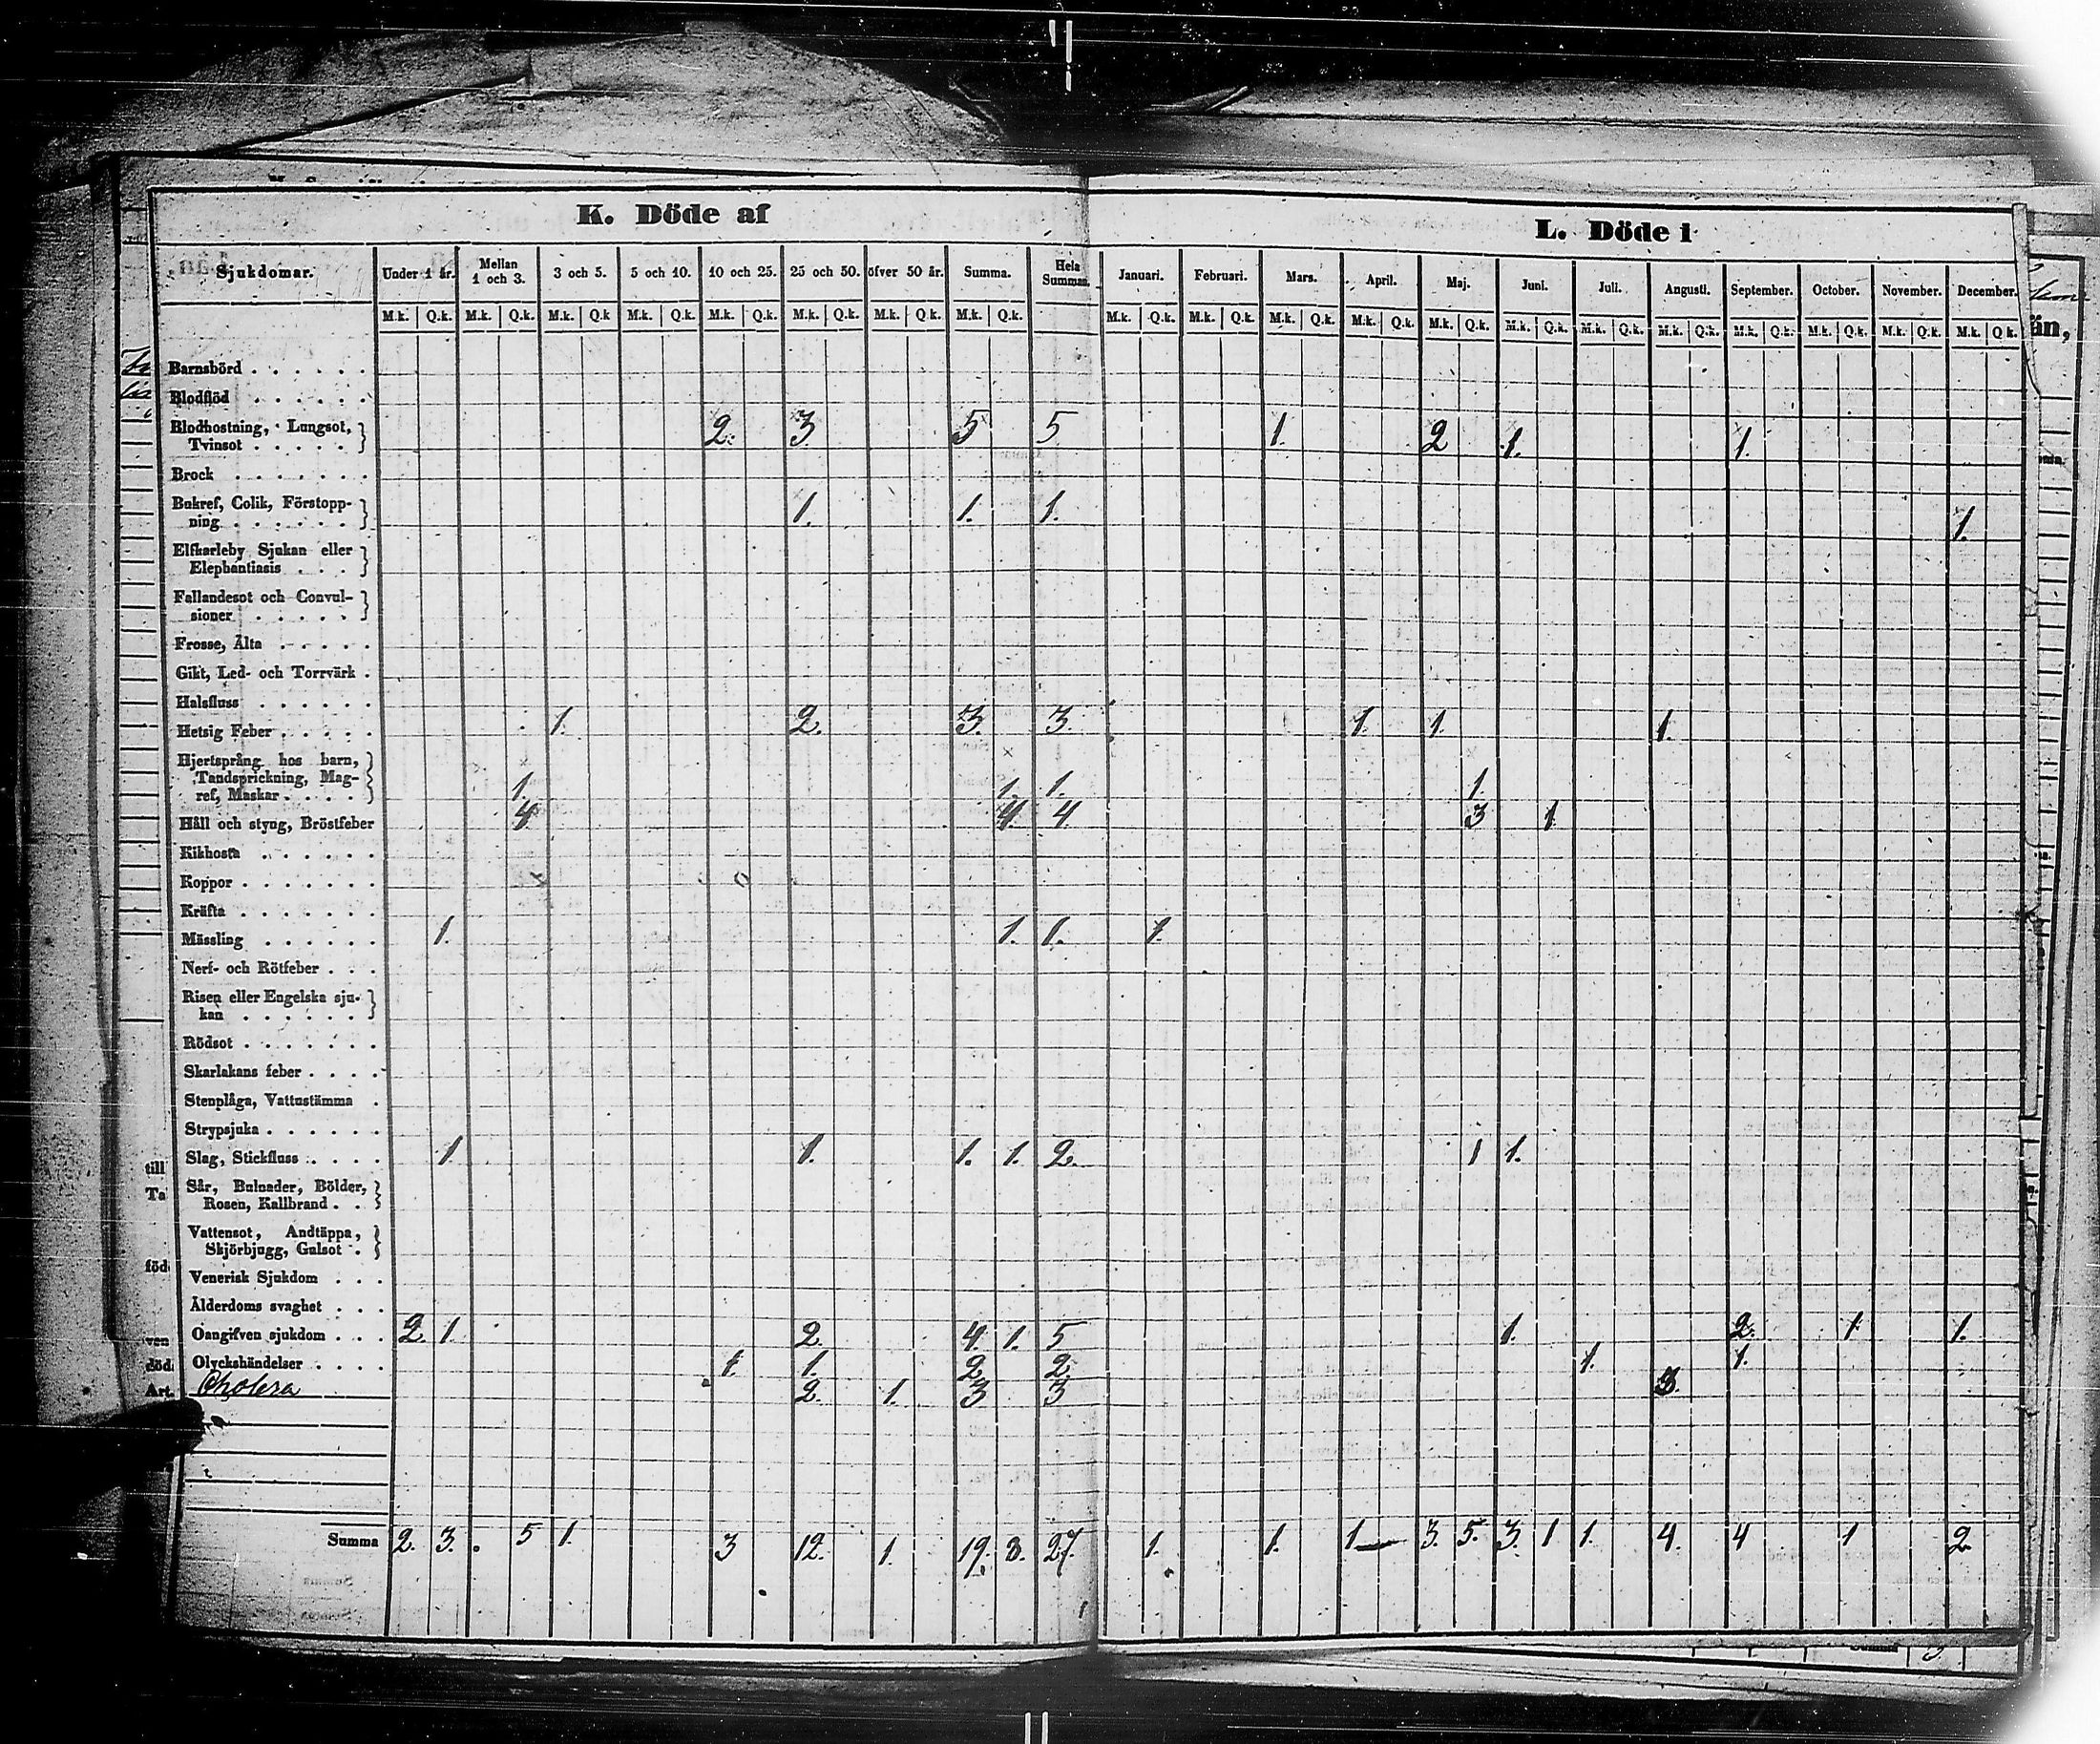 K. Döde af
L. Döde i
Sjukdomar. Under 1 år. Mellan 1 och 3. 3 och 5. 5 och 10. 10 och 25. 25 och 50. öfver 50 år. Summa. Hela Summan. Januari. Februari. Mars. April. Maj. Juni. Juli. Augusti. September. October. November. December.
M.k. Q.k. M.k. Q.k. M.k. Q.k M.k. Q.k. M.k. Q.k. M.k. Q.k. M.k. Q.k. M.k. Q.k. M.k. Q.k. M.k. Q.k. M.k. Q.k. M.k. Q.k. M.k. Q.k. M.k. Q.k. M.k. Q.k. M.k. Q.k. M.k. Q.k. M.k. Q.k. M.k. Q.k. M.k. Q.k.
Barnsbörd . . . . . .
Blodflöd . . . . . .
Blodhostning, Lungsot,
Tvinsot . . . . . 2. 3. 5 5 1. 2 1. 1.
Brock . . . . . . .
Bukref, Colik, Förstopp-
ning . . . . . . 1. 1. 1. 1.
Elfkarleby Sjukan eller
Elephantiasis . . .
Fallandesot och Convul-
sioner . . . . .
Frosse, Älta . . . . .
Gikt, Led- och Torrvärk .
Halsfluss . . . . . .
Hetsig Feber . . . . . 1. 2. 3. 3. 1. 1. 1.
Hjertsprång hos barn,
Tandsprickning, Mag-
ref, Maskar . . . . 1. 1. 1. 1.
Håll och styng, Bröstfeber 4 4. 4. 3 1
Kikhosta . . . . . .
Koppor . . . . . . .
Kräfta . . . . . . .
Mässling . . . . . . 1. 1. 1. 1.
Nerf- och Rötfeber . . .
Risen eller Engelska sju-
kan . . . . . .
Rödsot . . . . . . .
Skarlakans feber . . . .
Stenplåga, Vattustämma .
Strypsjuka . . . . . .
Slag, Stickfluss . . . . 1 1. 1. 1. 2. 1 1.
Sår, Bulnader, Bölder,
Rosen, Kallbrand . .
Vattensot, Andtäppa,
Skjörbjugg, Gulsot .
Venerisk Sjukdom . . .
Ålderdoms svaghet . . .
Oangifven sjukdom . . . 2. 1 2. 4. 1. 5 1. 2. 1 1.
Olyckshändelser . . . . 1. 1. 2. 2. 1. 1.
Cholera 2. 1. 3 3 3.
Summa 2. 3. 5 1. 3 12. 1. 19. 8. 27. 1. 1. 1 3. 5. 3. 1 1. 4. 4 1 2.
till
Ta
ven
död
Art.
än,